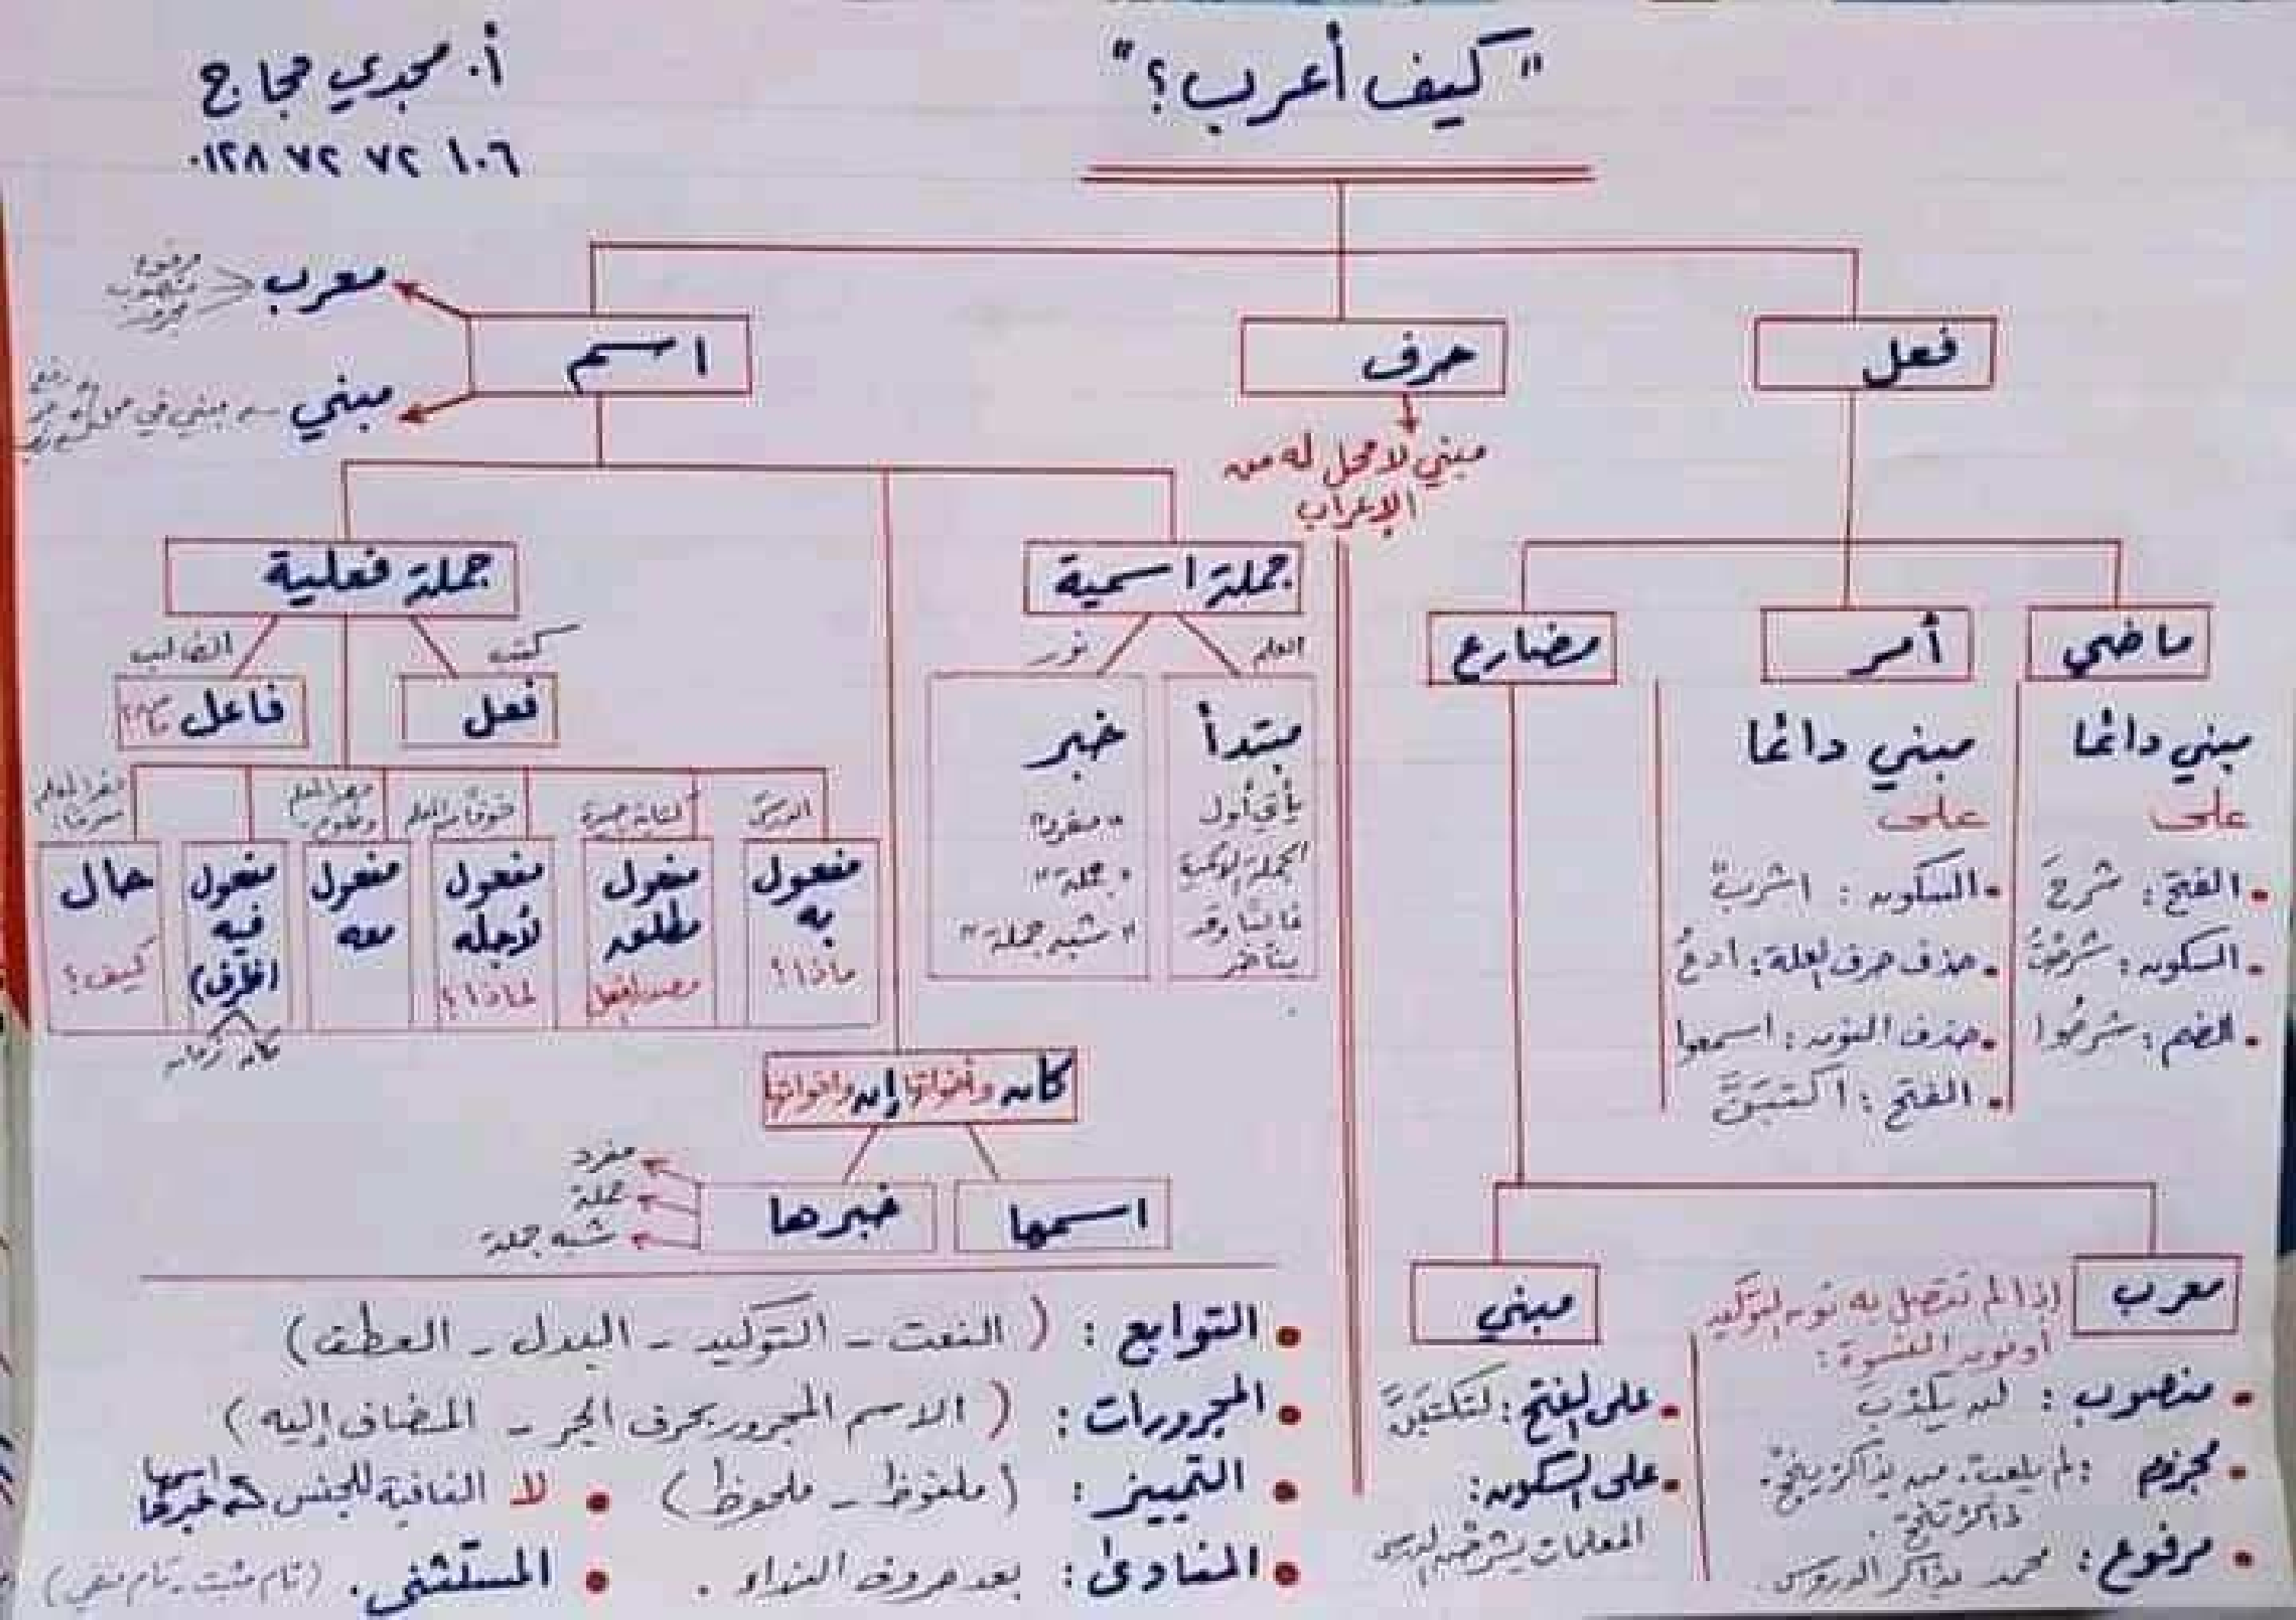 "كيف أعرب؟"
أ. مجدي حجاج
٠١٢٨ ٧٢ ٧٢ ١٠٦
فعل
حرف
مبني لا محل له من
الإعراب
اسم
معرب
مرفوع
منصوب
مجرور
مبني
مبني في محل
ماضي
مبني دائمًا
على
الفتح : شرحَ
السكون : شرحْتُ
الضم : شرحُوا
أمر
مبني دائمًا
على
السكون : اشربْ
حذف حرف العلة : ادعُ
حذف النون : اسمعوا
الفتح : اكتبَنَّ
مضارع
معرب
إذا لم تتصل به نون التوكيد
أو نون النسوة :
منصوب : لن يكذبَ
مجزوم : لم يلعبْ. من يذاكرْ ينجحْ.
ذاكرْ تنجحْ.
مرفوع : محمد يذاكر الدروس.
مبني
على الفتح : لتكتبَنَّ
على السكون :
المعلمات يشرحْن الدرس
جملة اسمية
العلم
نور
مبتدأ
يأتي أول
الجملة الاسمية
غالبًا وقد
يتأخر
خبر
"مفرد"
"جملة"
"شبه جملة"
جملة فعلية
كتب
الطالب
فعل
فاعل
الدرسَ
مفعول
به
ماذا؟
كتابة
مفعول
مطلق
مصدر الفعل
مفعول
لأجله
لماذا؟
مفعول
معه
مفعول
فيه
(ظرف)
مكان زمان
حال
كيف؟
كان وأخواتها إن وأخواتها
اسمها
خبرها
مفرد
جملة
شبه جملة
التوابع : ( النعت - التوكيد - البدل - العطف )
المجرورات : ( الاسم المجرور بحرف الجر - المضاف إليه )
التمييز : ( ملفوظ - ملحوظ )
لا النافية للجنس اسمها خبرها
المنادى : بعد حروف النداء .
المستثنى. (تام مثبت - تام منفي)